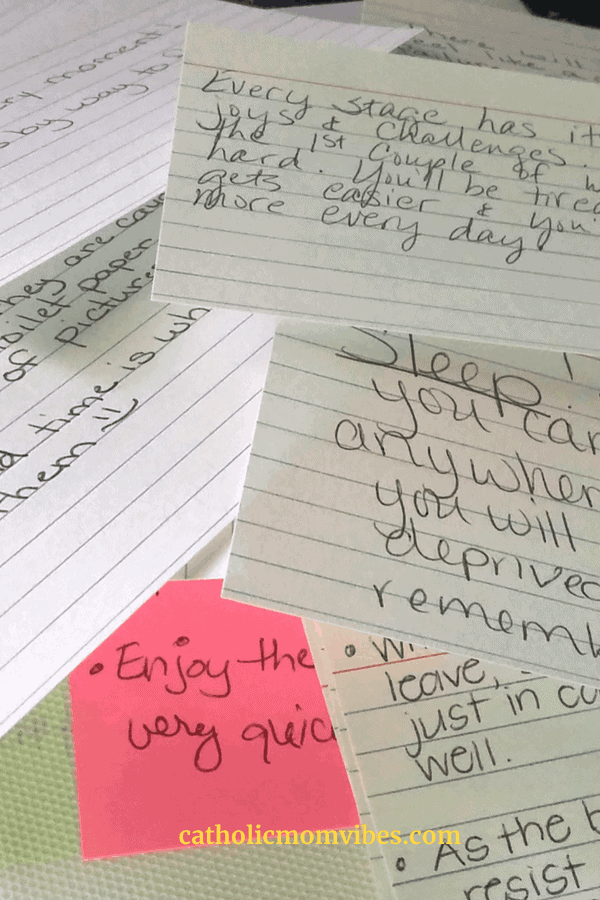 Every stage has it
joys & challenges.
The 1st couple of w
hard. You'll be tired
gets easier & you'
more every day!
ry moment
s by way to
There will
hey are
toilet paper
of picture
d time is wh
them !!
Sleep
you can
anywher
you will
deprived
rememb
• Enjoy the
very quic
• Wi
leave,
just in c
well.
• As the b
resist
catholicmomvibes.com